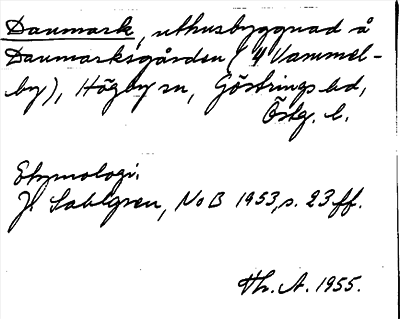 Danmark, uthusbyggnad å
Danmarksgården (4 Vammel-
by), Högby sn, Göstrings hd,
Östg. l.
Etymologi.
J. Sahlgren, NoB 1953, s. 23 ff.
Th. A. 1955.